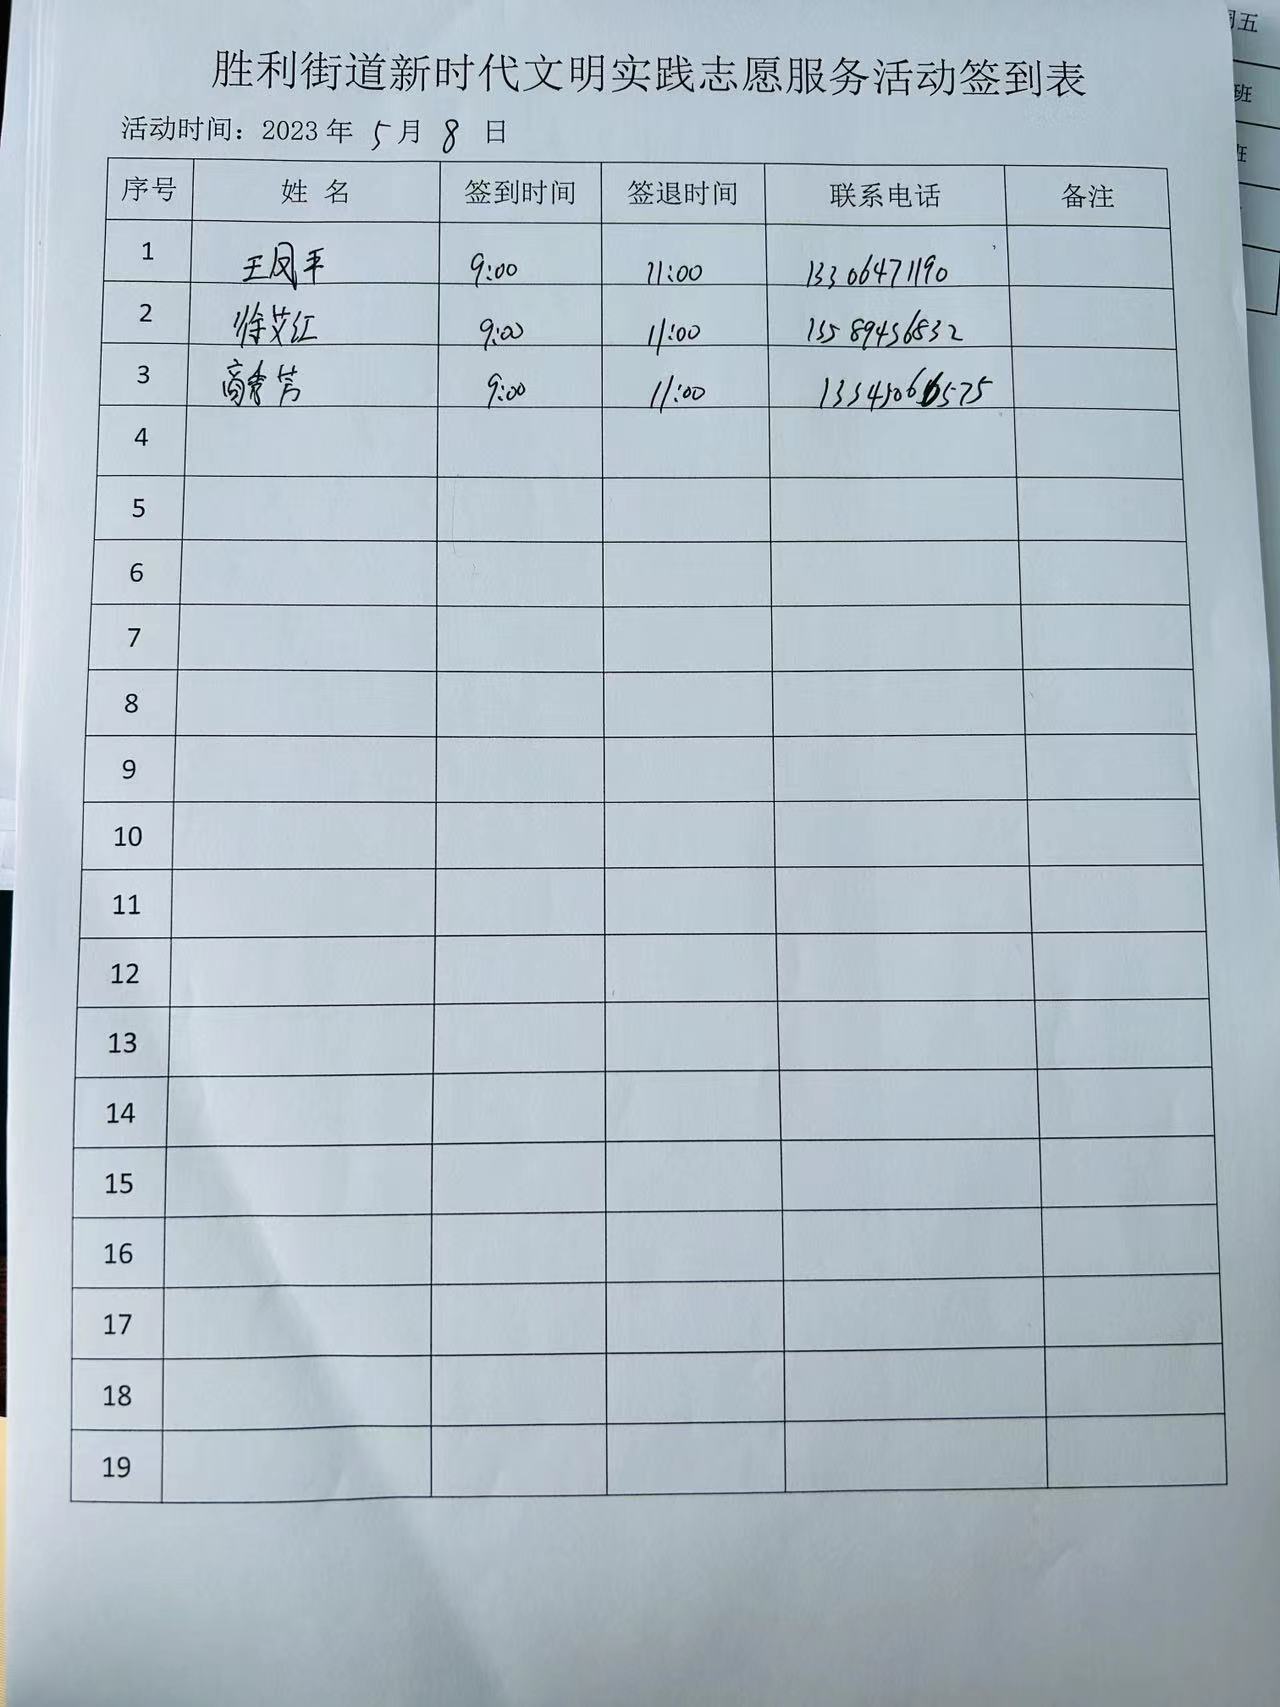 胜利街道新时代文明实践志愿服务活动签到表
活动时间：2023 年 5 月 8 日
序号 姓 名 签到时间 签退时间 联系电话 备注
1 王凤平 9:00 11:00 13306471190
2 徐艾红 9:00 11:00 13589456832
3 高秀芳 9:00 11:00
4
5
6
7
8
9
10
11
12
13
14
15
16
17
18
19
周五
班
班